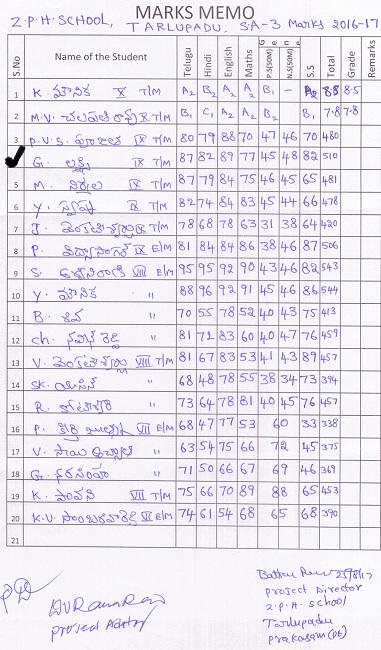 MARKS MEMO
Z.P.H. SCHOOL, TARLUPADU, SA-3 Marks 2016-17
S.No Name of the Student Telugu Hindi English Maths Gene P.S(50M) N.S(50M) S.S Total Grade Remarks
1 K. మౌనిక X T/M A2 B2 A2 A2 B1 - A2 8.8 8.5
2 M.V. X T/M B1 C1 A2 A2 B2 B1 7.8 7.8
3 P.V.S. IX T/M 80 79 88 70 47 46 70 480
G. లక్ష్మి IX T/M 87 82 89 77 45 48 82 510
5 M. నిర్మల IX T/M 87 79 84 75 46 45 65 481
6 Y. స్వప్న IX T/M 82 74 84 83 45 44 66 478
7 J. వెంకటేశ్వర్లు IX T/M 78 68 78 63 31 38 64 420
8 P. విద్యాసాగర్ IX E/M 81 84 84 86 38 46 87 506
9 S. VIII E/M 95 95 92 90 43 46 82 543
10 Y. మౌనిక " 88 96 92 91 45 46 86 544
11 B. శివ " 70 55 78 52 40 43 75 413
12 Ch. నవీన్ రెడ్డి " 81 72 83 60 40 47 76 459
13 V. వెంకటేశ్వర్లు VIII T/M 81 67 83 53 41 43 89 457
14 SK. యాసిన్ " 68 48 78 55 38 34 73 394
15 R. కోటేశ్వరి " 73 64 78 81 40 45 76 457
16 P. VII E/M 68 47 77 53 60 33 338
17 V. సాయి " 63 54 75 66 72 45 375
18 G. నరసింహ " 71 50 66 67 69 46 369
19 K. పావని VII T/M 75 66 70 89 88 65 453
20 K.V. VI E/M 74 61 54 68 65 68 390
21
25/8/17
Project Director
Z.P.H. School
Tarlupadu
Prakasam (Dt)